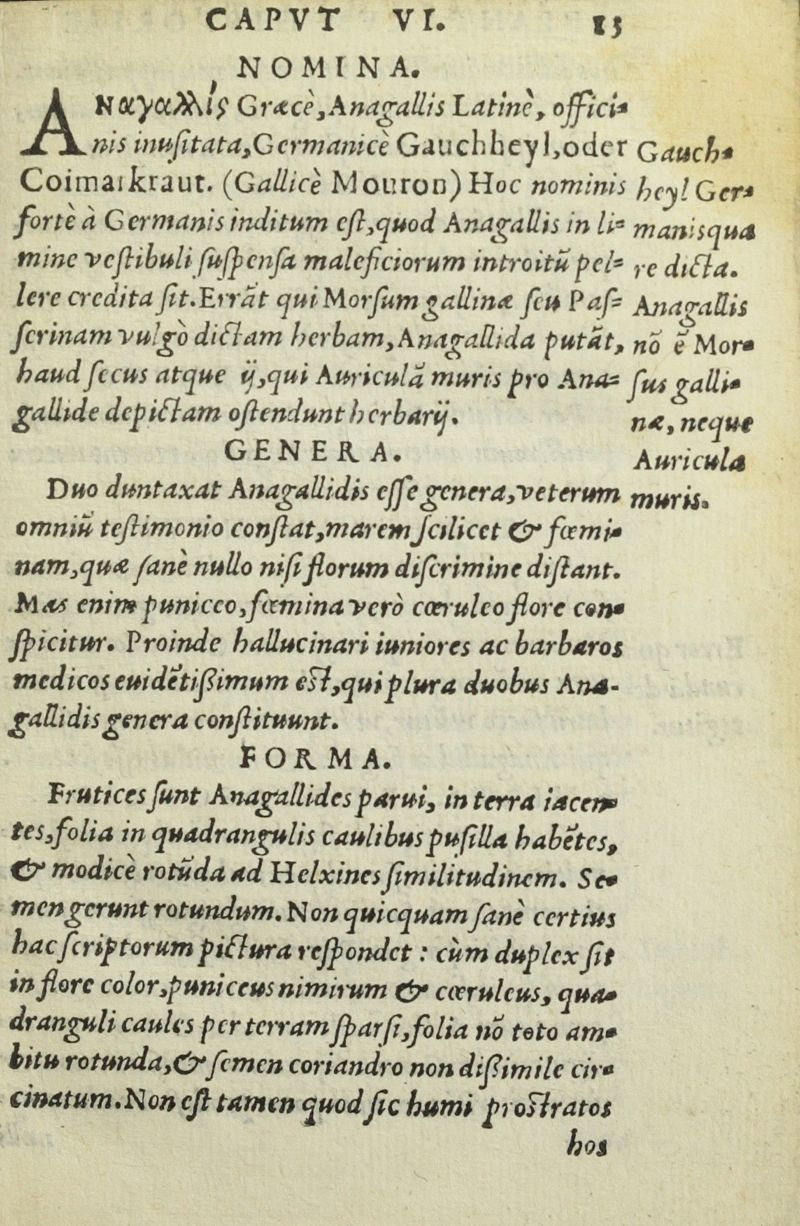 CAPVT VI. 15
NOMINA.
ἈΝαγαλλίς Græcè, Anagallis Latinè, offici-
nis inuſitata, Germanicè Gauchheyl, oder
Coimarkraut. (Gallicè Mouron) Hoc nominis
fortè à Germanis inditum eſt, quod Anagallis in li-
mine veſtibuli ſuſpenſa maleficiorum introitũ pel-
lere credita ſit. Errãt qui Morſum gallinæ ſeu Paſ-
ſerinam vulgò dictam herbam, Anagallida putãt,
haud ſecus atque ij, qui Auriculã muris pro Ana-
gallide depictam oſtendunt herbarij.
Gauch-
heyl Ger-
manis qua
re dicta.
Anagallis
nõ ẽ Mor-
ſus galli-
næ, neque
Auricula
muris.
GENERA.
Duo duntaxat Anagallidis eſſe genera, veterum
omniũ teſtimonio conſtat, marem ſcilicet & fœmi-
nam, quæ ſanè nullo niſi florum diſcrimine diſtant.
Mas enim puniceo, fœmina verò cœruleo flore con-
ſpicitur. Proinde hallucinari iuniores ac barbaros
medicos euidẽtißimum eſt, qui plura duobus Ana-
gallidis genera conſtituunt.
FORMA.
Frutices ſunt Anagallides parui, in terra iacen-
tes, folia in quadrangulis caulibus puſilla habẽtes,
& modicè rotũda ad Helxines ſimilitudinem. Se-
men gerunt rotundum. Non quicquam ſanè certius
hac ſcriptorum pictura reſpondet : cùm duplex ſit
in flore color, puniceus nimirum & cœruleus, qua-
dranguli caules per terram ſparſi, folia nõ toto am-
bitu rotunda, & ſemen coriandro non dißimile cir-
cinatum. Non eſt tamen quod ſic humi proſtratos
hos